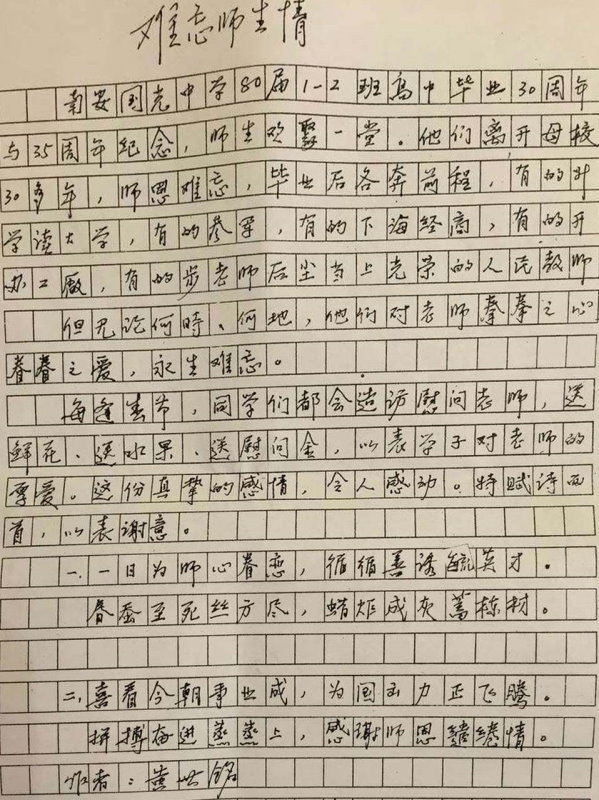 难忘师生情
南安国光中学80届1-2班高中毕业30周年
与35周年纪念，师生欢聚一堂。他们离开母校
30多年，师恩难忘，毕业后各奔前程，有的升
学读大学，有的参军，有的下海经商，有的开
办工厰，有的步老师后尘当上光荣的人民教师
但无论何時、何地，他们对老师拳拳之心
眷眷之爱，永生难忘。
每逢春节，同学们都会造访慰问老师，送
鲜花、送水果、送慰问金，以表学子对老师的
厚爱。这份真挚的感情，令人感动。特赋诗两
首，以表谢意。
一、一日为师心眷恋，循循善诱毓英才。
春蚕至死丝方尽，蜡炬成灰筑栋材。
二、喜看今朝事业成，为国出力正飞腾。
拼搏奋进蒸蒸上，感谢师恩缱绻情。
作者：黄世铭